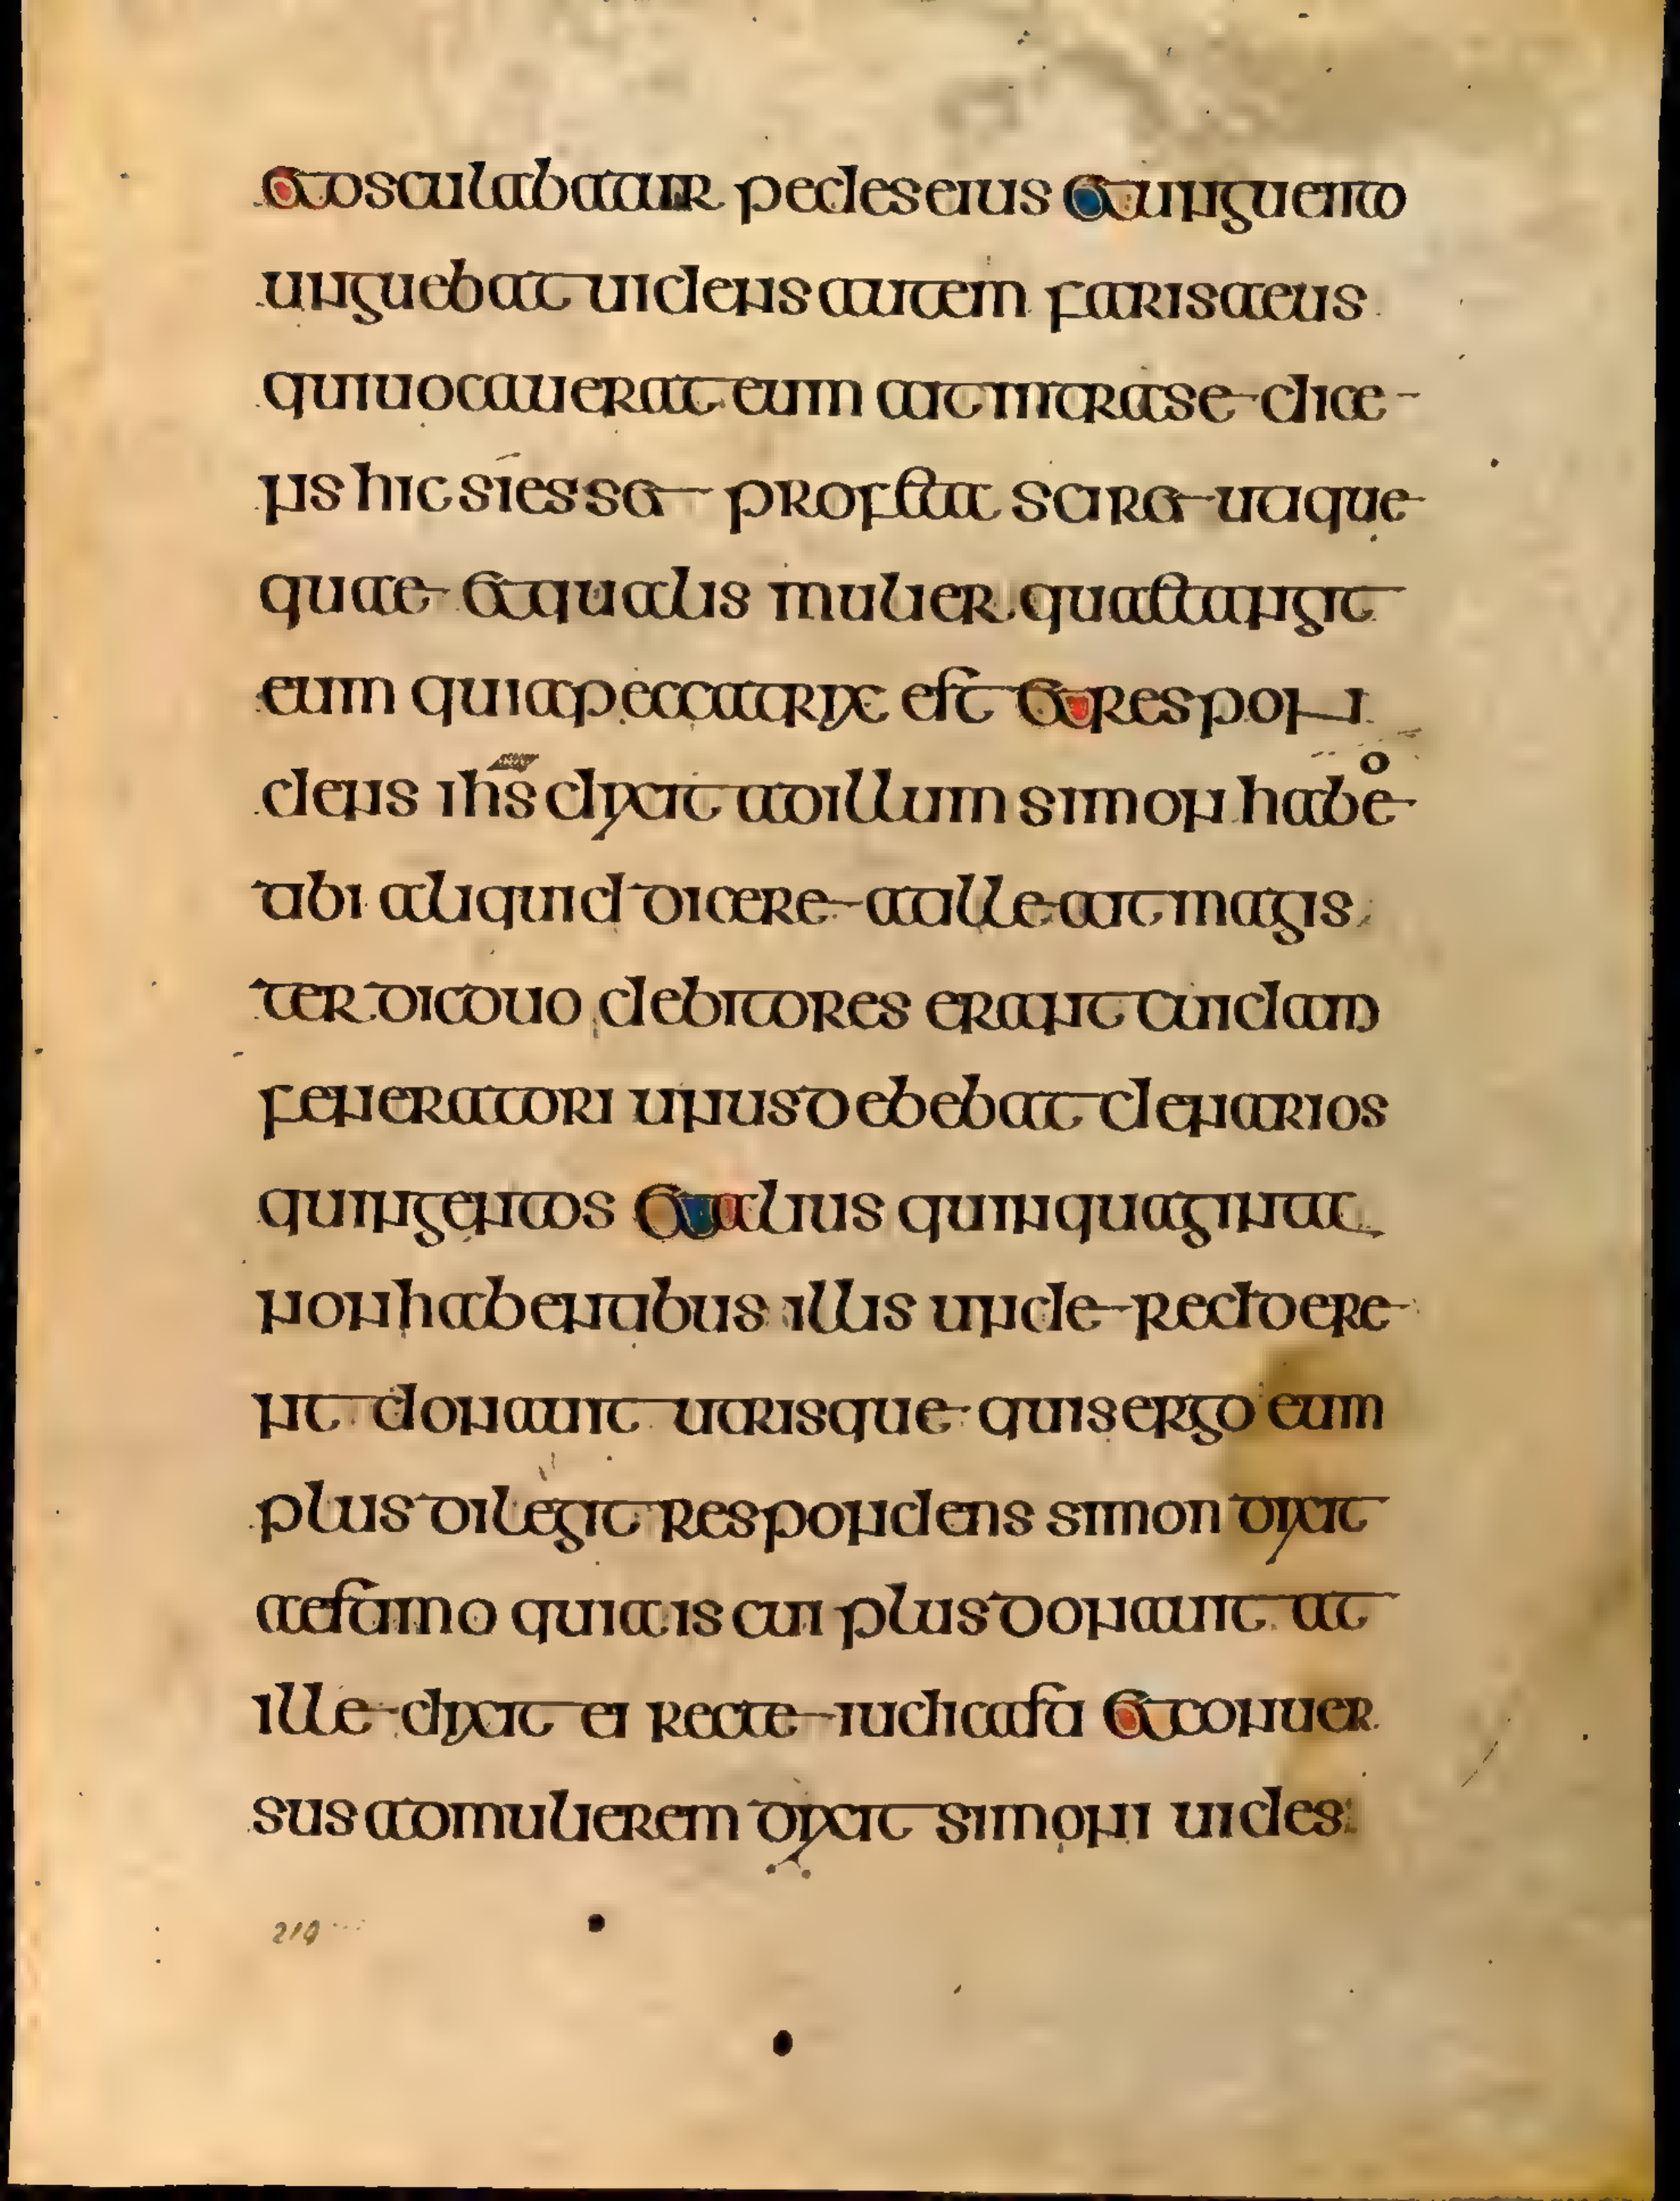 et osculabatur pedes eius et unguento
unguebat uidens autem farisaeus
qui uocauerat eum ait intra se dice-
ns hic si esset profeta sciret utique
quae et qualis mulier quae tangit
eum quia peccatrix est et respon
dens ihs dixit ad illum simon habeo
tibi aliquid dicere at ille ait magis
ter dic duo debitores erant cuidam
feneratori unus debebat denarios
quingentos et alius quinquaginta
non habentibus illis unde reddere
nt donauit utrisque quis ergo eum
plus dilegit respondens simon dixit
aestimo quia is cui plus donauit at
ille dixit ei recte iudicasti et conuer
sus ad mulierem dixit simoni uides
219